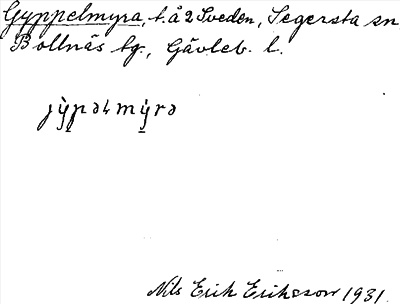 Gyppelmyra, t. å 2 Sveden, Segersta sn
Bollnäs tg., Gävleb. l.
jỳ̠pəɬmỳ̠rə
Nils Erik Eriksson 1931.